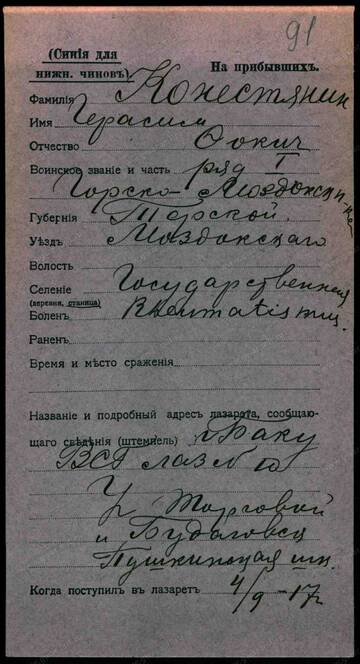 91
(Синія для нижн. чиновъ) На прибывшихъ.
Фамилія Конестянин
Имя Герасим
Отчество Фокич
Воинское званіе и часть ряд I
Горско-Моздокск
Губернія Терской.
Уѣздъ Моздокскаго
Волость
Селеніе Государственная
(деревня, станица)
Боленъ Rheumatismus.
Раненъ
Время и мѣсто сраженія
Названіе и подробный адресъ лазарета, сообщаю-
щаго свѣдѣнія (штемпель) г. Баку
ВСГ лаз № 10
Уг Торговой
и Будаговск
Пушкинская шк.
Когда поступилъ въ лазаретъ 4/9-17г